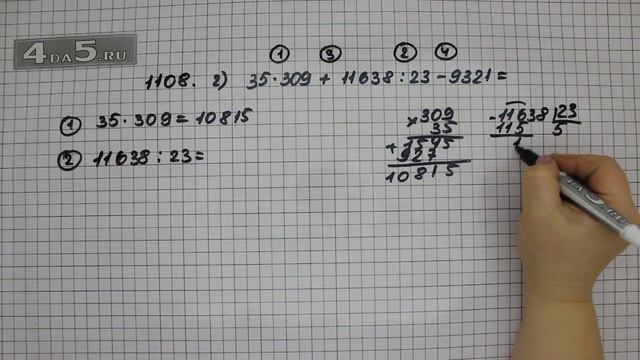 4DA5.RU
① ③ ② ④
1108. 2) 35·309 + 11638:23 - 9321 =
① 35·309 = 10815
② 11638:23 =
× 309
35
+ 1545
927
10815
- 11638 | 23
115 5
1